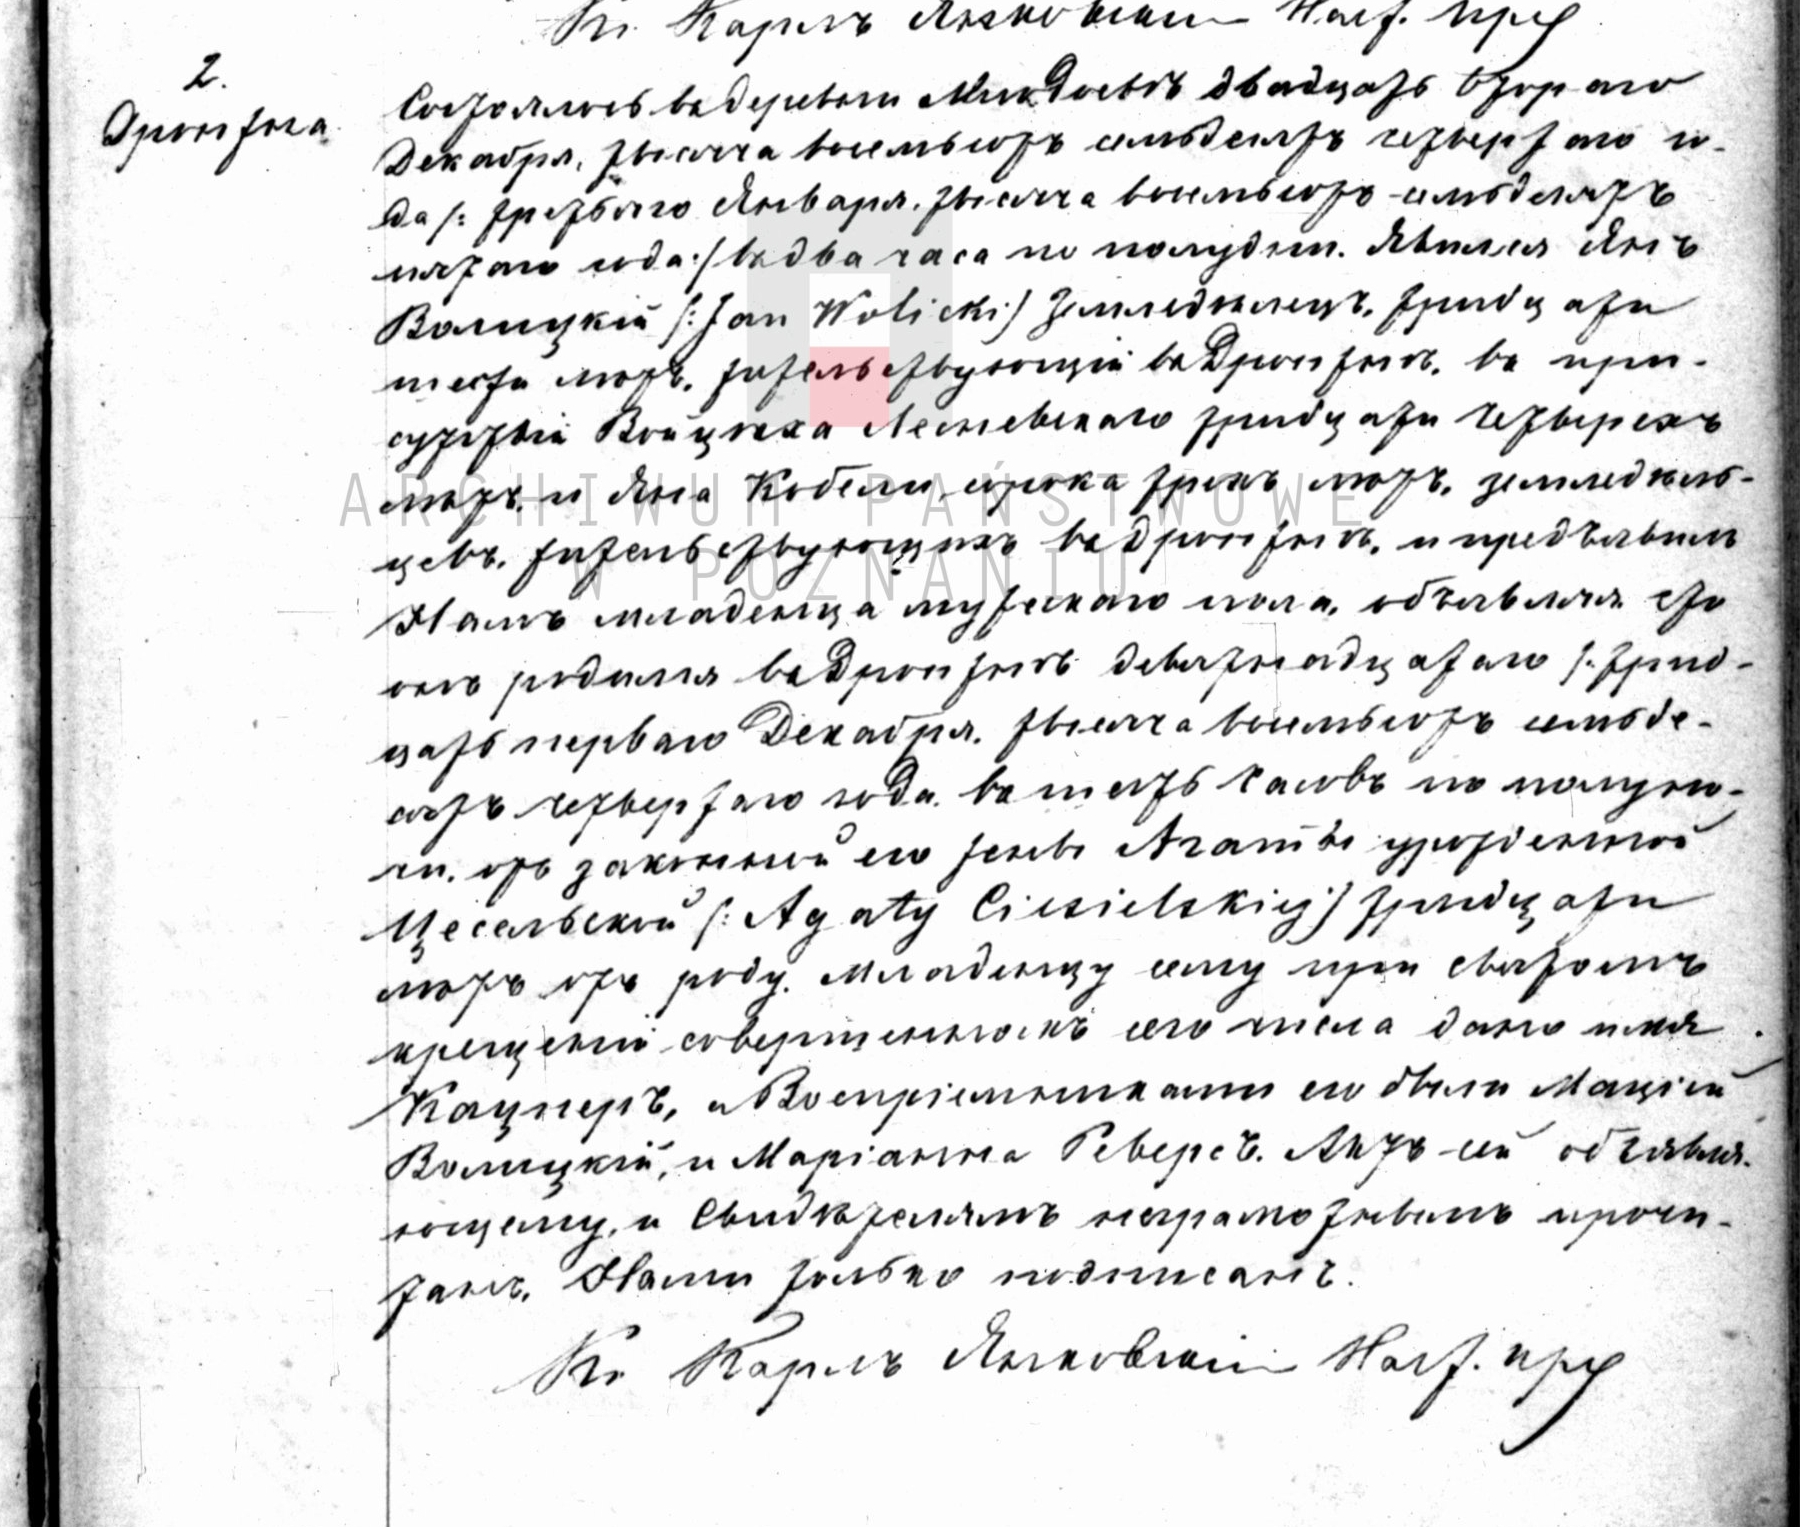 Кс. Карлъ Янковскій Наст. прх
2.
Дроністна
Состоялось въ деревни Милодоевѣ двадцать втораго
Декабря, тысяча восемьсотъ семьдесятъ четвертаго го-
да /: третьяго Января, тысяча восемьсотъ семьдесятъ
пятаго года:/ въ два часа по полудни. Явился Янъ
Волицкій /: Jan Wolicki/ земледѣлецъ, тридцати
шести лѣтъ, жительствующій въ, въ при-
сутствіи Войцѣха Лесневскаго тридцати четверехъ
лѣтъ, и Яна Кобели сорока трехъ лѣтъ, земледѣль-
цевъ, жительствующихъ въ, и предъявилъ
Намъ младенца мужескаго пола, объявляя что
онъ родился въ девятнадцатаго /: трид-
цать перваго Декабря, тысяча восемьсотъ семьде-
сятъ четвертаго года, въ шесть часовъ по полуно-
чи, отъ законной его жены Агаты урожденной
Цесельской /: Agaty Ciesielskiej/ тридцати
лѣтъ отъ роду. Младенцу сему при святомъ
крещеніи совершенномъ сего числа дано имя
Кацперъ, а Воспріемниками его были Мацѣй
Волицкій, и Маріанна Реверсъ. Актъ сей объявля-
ющему, и Свидѣтелямъ неграмотнымъ прочи-
танъ, Нами только подписанъ.
Кс. Карлъ Янковскій Наст. прх
ARCHIWUM PAŃSTWOWE
W POZNANIU